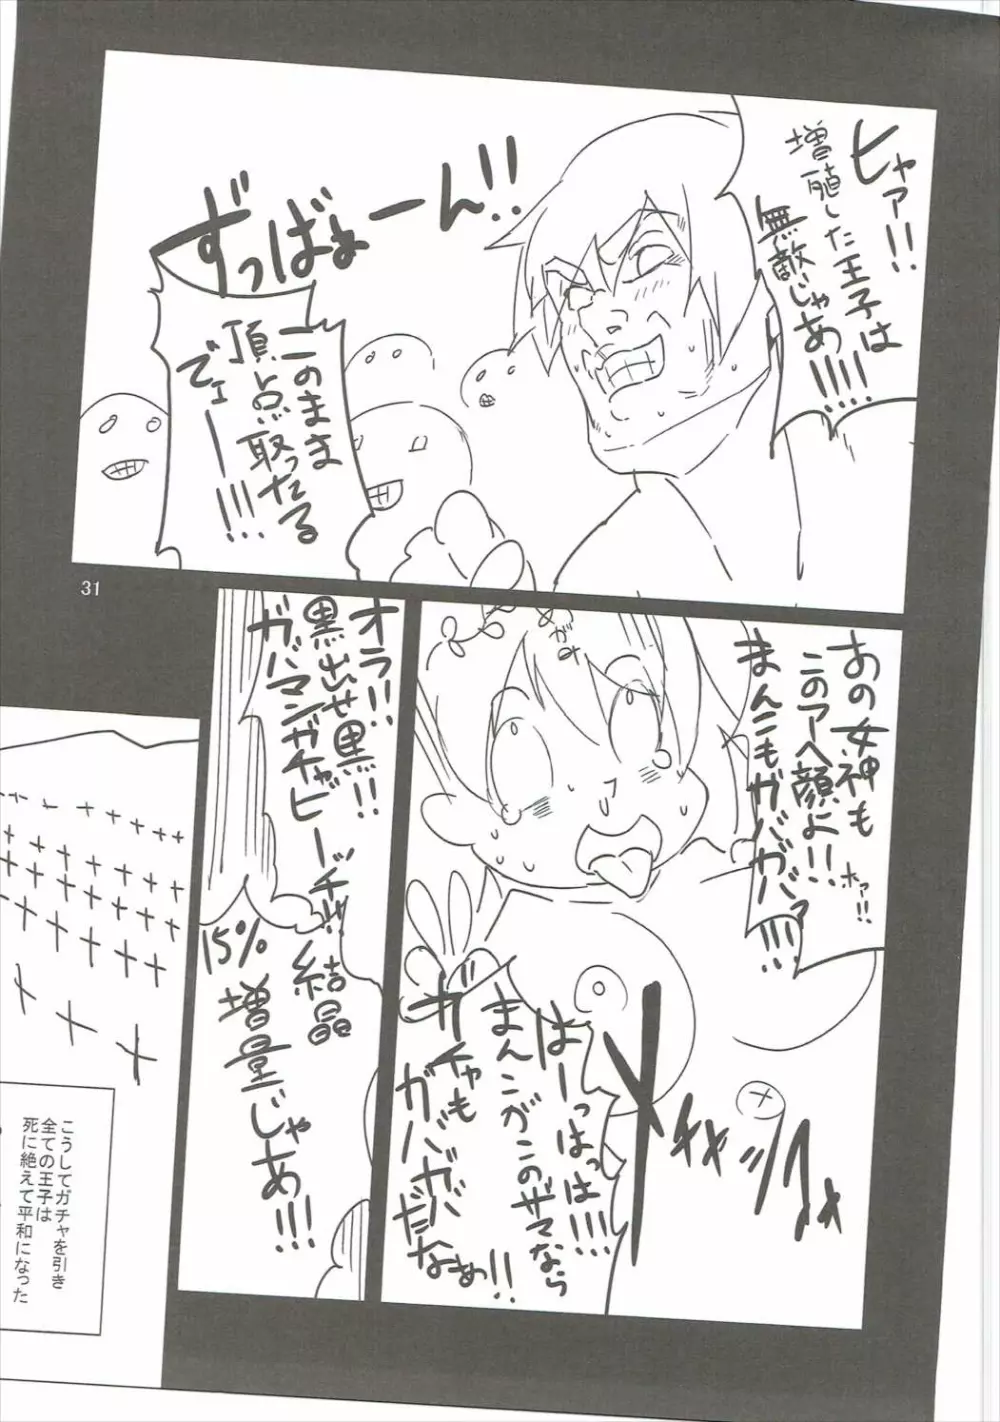 ヒャア!!
増殖した王子は
無敵じゃあ!!!!
ずっばぁーん!!
このまま
頂点取ったる
でェーー!!!
31
めがみ
あの女神も
このアヘ顔よ!!
ホァ!!
まんこもガバガバァ!!!
はーっはっは!!!!
まんこがこのザマなら
ガチャも
ガバガバ
だなぁ!!
オラ!!
黒出せ黒!!
ガバマンガチャビーッチ!!
結晶
15%
増量じゃあ!!!
こうしてガチャを引き
全ての王子は
死に絶えて平和になった